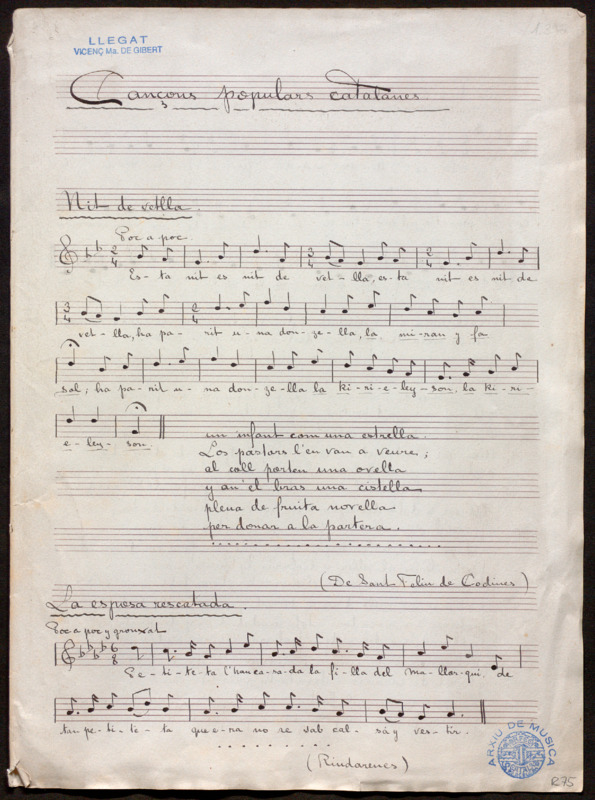 LLEGAT
VICENÇ Ma. DE GIBERT
Cançons populars catalanes
Nit de vetlla.
Poc a poc
2/4 3/4 2/4
Es- ta nit es nit de vet- lla, es- ta nit es nit de
3/4 2/4
vet- lla, ha pa- rit u- na don- ze- lla, la mi- ran y fa
sol; ha pa- rit u- na don- ze- lla la ki- ri- e- ley- son, la ki- ri-
e- ley- son.
un infant com una estrella.
Los pastors l'en van a veure;
al coll porten una ovella
y an' el bras una cistella
plena de fruita novella
per donar a la partera.
(De Sant Feliu de Codines)
La esposa rescatada.
Poc a poc y gronxat
6/8
Pe- ti- te- ta l'han ca- sa- da la fi- lla del ma- llor- quí, de
tan pe- ti- te- ta que e- ra no se sab cal- sá y ves- tir.
(Rindarenes)
ARXIU DE MÚSICA
R75